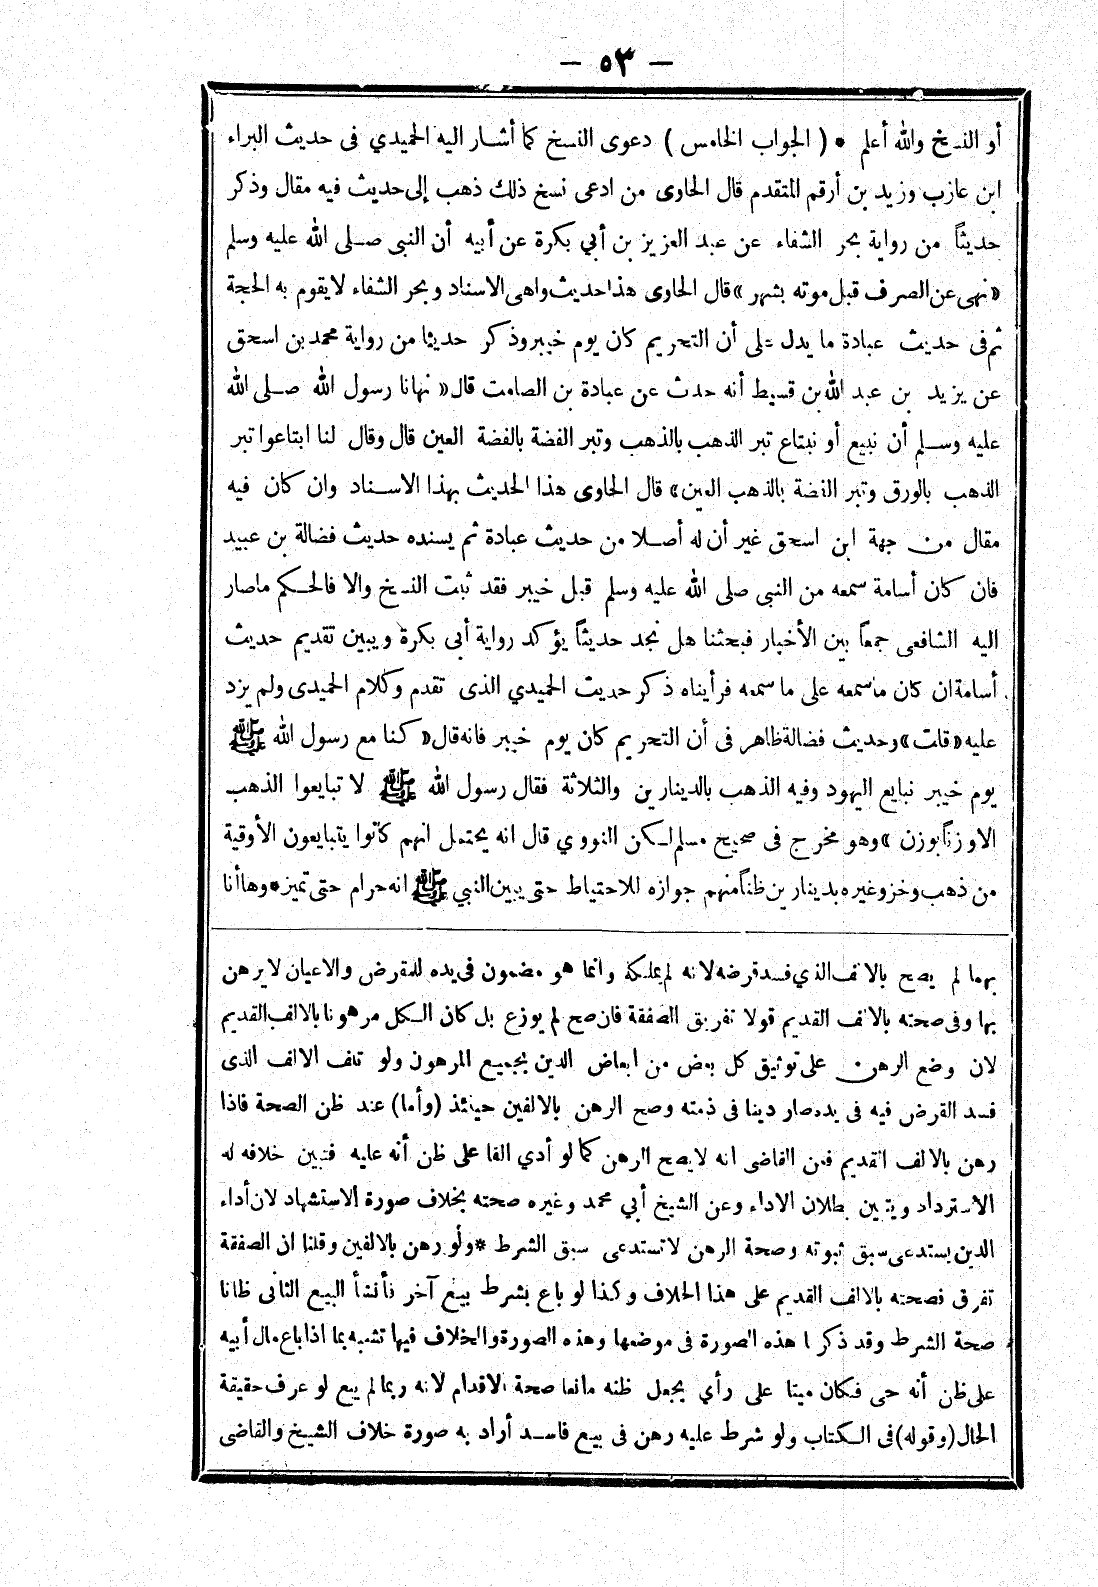 — ٥٣ —
أو النسخ والله أعلم * ( الجواب الخامس ) دعوى النسخ كما أشار اليه الحميدي فى حديث البراء
ابن عازب وزيد بن أرقم المتقدم قال الحاوى من ادعى نسخ ذلك ذهب إلى حديث فيه مقال وذكر
حديثاً من رواية بحر الشفاء عن عبد العزيز بن أبي بكرة عن أبيه أن النبى صلى الله عليه وسلم
«نهى عن الصرف قبل موته بشهر» قال الحاوى هذا حديث واهى الاسناد وبحر الشفاء لايقوم به الحجة
ثم فى حديث عبادة ما يدل على أن التحريم كان يوم خيبر وذكر حديثا من رواية محمد بن اسحق
عن يزيد بن عبد الله بن قسيط أنه حدث عن عبادة بن الصامت قال « نهانا رسول الله صلى الله
عليه وسلم أن نبيع أو نبتاع تبر الذهب بالذهب وتبر الفضة بالفضة العين قال وقال لنا ابتاعوا تبر
الذهب بالورق وتبر الفضة بالذهب العين» قال الحاوى هذا الحديث بهذا الاسناد وان كان فيه
مقال من جهة ابن اسحق غير أن له أصلا من حديث عبادة ثم يسنده حديث فضالة بن عبيد
فان كان أسامة سمعه من النبى صلى الله عليه وسلم قبل خيبر فقد ثبت النسخ والا فالحكم ماصار
اليه الشافعى جمعاً بين الأخبار فبحثنا هل نجد حديثاً يؤكد رواية أبى بكرة ويبين تقديم حديث
أسامة ان كان ماسمعه على ماسمعه فرأيناه ذكر حديث الحميدي الذى تقدم وكلام الحميدى ولم يزد
عليه «قلت» وحديث فضالة ظاهر فى أن التحريم كان يوم خيبر فانه قال « كنا مع رسول الله ﷺ
يوم خيبر نبايع اليهود وفيه الذهب بالدينارين والثلاثة فقال رسول الله ﷺ لا تبايعوا الذهب
الا وزناً بوزن » وهو مخرج فى صحيح مسلم لكن النووي قال انه يحتمل انهم كانوا يتبايعون الأوقية
من ذهب وخز وغيره بدينارين ظناً منهم جوازه للاحتياط حتى يبين النبي ﷺ انه حرام حتى تميز * وها أنا
بهما لم يصح بالالف الذي فسد قرضه لانه لم يملكه وانما هو مضمون فى يده للمقرض والاعيان لا يرهن
بها وفى صحته بالالف القديم قولا تفريق الصفقة فان صح لم يوزع بل كان الكل مرهونا بالالف القديم
لان وضع الرهن على توثيق كل بعض من ابعاض الدين بجميع المرهون ولو تلف الالف الذى
فسد القرض فيه فى يده صار دينا فى ذمته وصح الرهن بالالفين حينئذ (وأما) عند ظن الصحة فاذا
رهن بالالف القديم فعن القاضى انه لايصح الرهن كما لو أدي الفا على ظن أنه عليه فتبين خلافه له
الاسترداد ويتبين بطلان الاداء وعن الشيخ أبي محمد وغيره صحته بخلاف صورة الاستشهاد لان أداء
الدين يستدعى سبق ثبوته وصحة الرهن لا تستدعى سبق الشرط * ولو رهن بالالفين وقلنا ان الصفقة
تفرق فصحته بالالف القديم على هذا الخلاف وكذا لو باع بشرط بيع آخر فأنشأ البيع الثانى ظانا
صحة الشرط وقد ذكر ا هذه الصورة فى موضعها وهذه الصورة والخلاف فيها تشبه بما اذا باع مال أبيه
على ظن أنه حى فكان ميتا على رأي يجعل ظنه مانعا صحة الاقدام لانه ربما لم يبع لو عرف حقيقة
الحال (وقوله) فى الكتاب ولو شرط عليه رهن فى بيع فاسد أراد به صورة خلاف الشيخ والقاضى